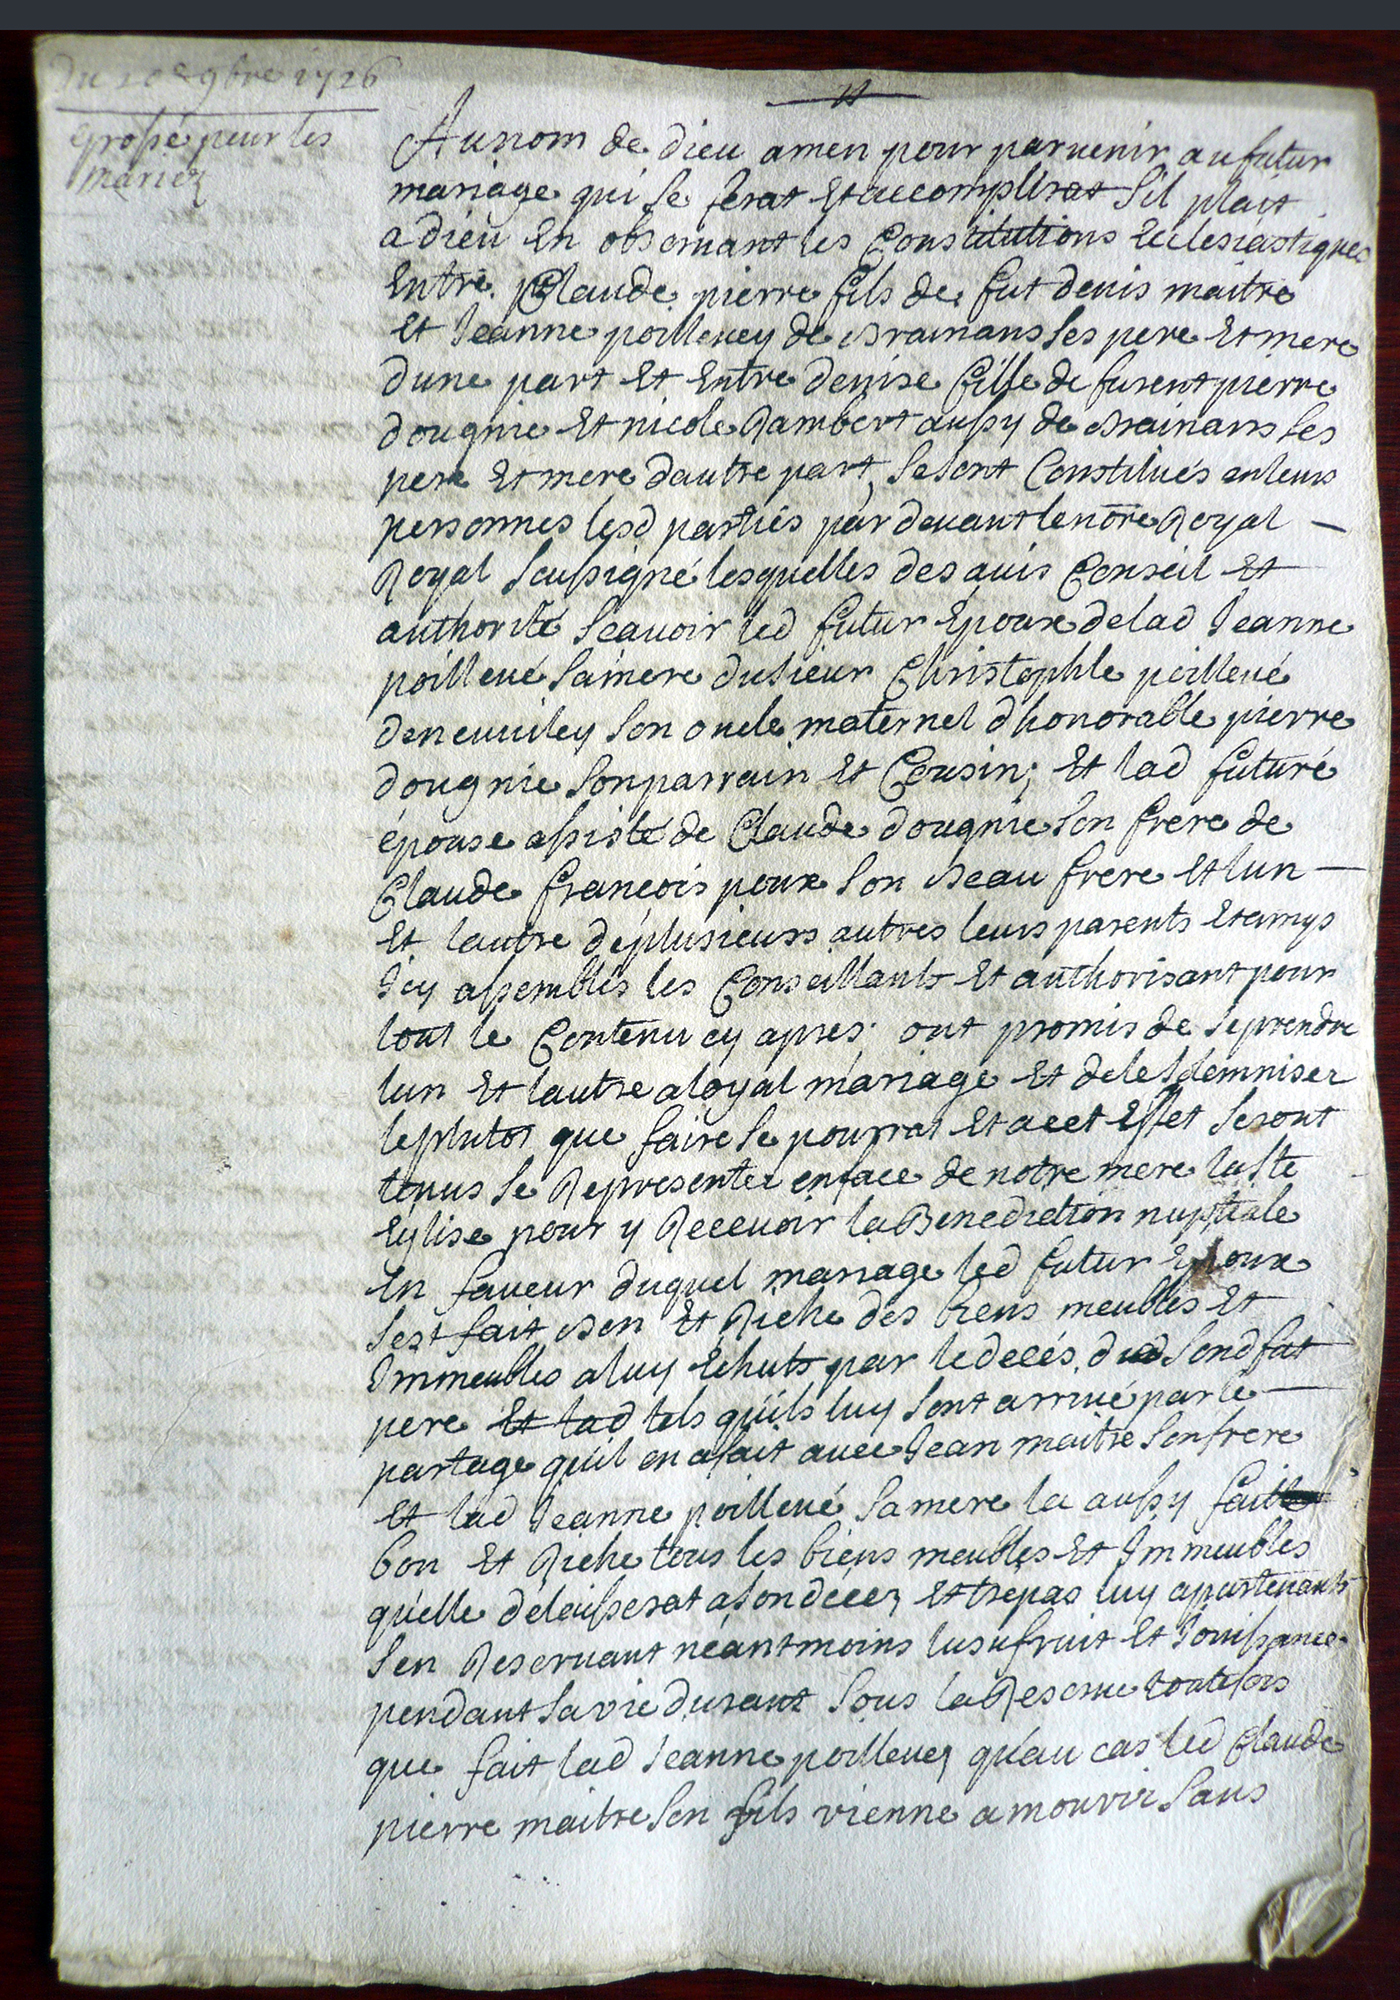 Du 20e 9bre 1726
grossé pour les
mariez
Au nom de dieu amen pour paruenir au futur
mariage qui se ferat Et accomplirat sil plait
a dieu En obseruant les Constitutions Ecclesiastiques
Entre Claude pierre fils de fut denis maitre
Et Jeanne poilleuey de Brainans ses pere Et mere
dune part Et Entre denise fille de furent pierre
dougnie Et nicole Rambert aussy de Brainans ses
pere Et mere dautre part, se sont Constitués en leurs
personnes lesd parties par deuant le nore Royal
Royal soussigné lesquelles des auis Conseil Et
authorité scauoir led futur Epoux de lad Jeanne
poilleué sa mere du sieur Christophle poilleué
de neuuiley son oncle maternel dhonorable pierre
dougnie son parrain Et Cousin; Et lad futuré
épouse assisté de Claude dougnie son frere de
Claude francois poux son Beau frere Et lun
Et lautre de plusieurs autres leurs parents Et amys
Icy assemblés les Conseillants Et authorisant pour
tout le Contenu cy apres ont promis de se prendre
lun Et lautre a loyal mariage Et de le sdemniser
le plutot que faire se pourrat Et a cet Effet seront
tenus se Representer en face de notre mere la ste
Eglise pour y Receuoir la Benediction nuptiale
En faueur duquel mariage led futur Epoux
sest fait Bon Et Riche des biens meubles Et
Immeubles a luy Echuts par le decés dud sond fut
pere Et lad tels quils luy sont arriué par le
partage quil en a fait auec Jean maitre son frere
Et lad Jeanne poilleué sa mere la aussy fait
bon Et Riche tous les biens meubles Et Immeubles
quelle delaisserat a son decez Et trepas luy apartenants
sen Reseruant néantmoins lusufruit Et Jouissance
pendant sa vie durant sous la Reserue toutefois
que fait lad Jeanne poilleuey quau cas led Claude
pierre maitre son fils vienne a mourir sans